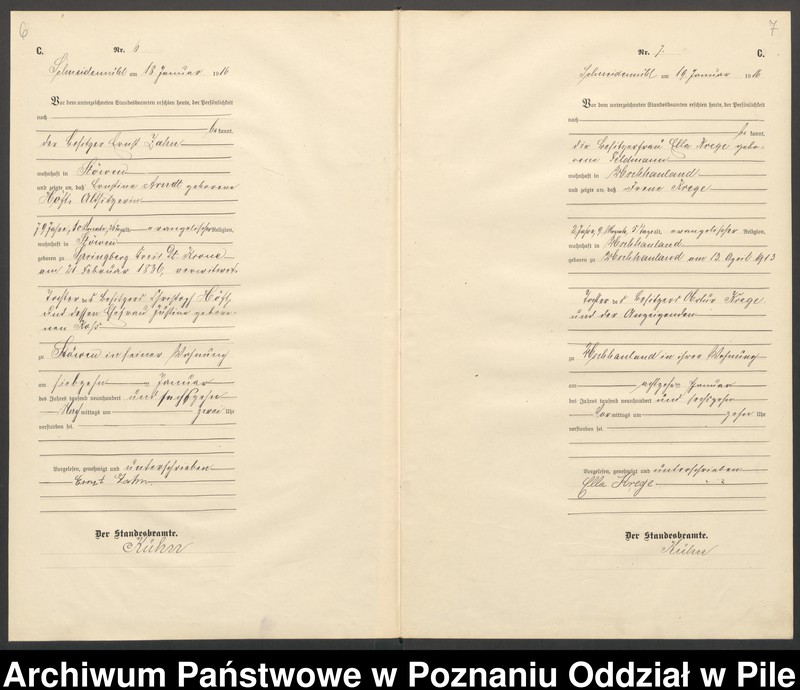 6
C.
Nr. 6
Schneidemühl am 18 Januar 1916
Vor dem unterzeichneten Standesbeamten erschien heute, der Persönlichkeit
nach
bekannt,
der Besitzer Ernst Zahn
wohnhaft in Stöwen
und zeigte an, daß Ernstine Arndt geborene
Höft, Altsitzerin
79 Jahre, 10 Monate, alt, evangelischer Religion,
wohnhaft in Stöwen
geboren zu Springberg Kreis Dt. Krone
am 21 Februar 1836, verwitwet
Tochter des Besitzers Christoph Höft
und dessen Ehefrau Justine gebore-
nen
zu Stöwen in seiner Wohnung
am siebzehn Januar
des Jahres tausend neunhundert und sechszehn
Nachmittags um zwei Uhr
verstorben sei.
Vorgelesen, genehmigt und unterschrieben
Ernst Zahn
Der Standesbeamte.
Kühn
7
C.
Nr. 7.
Schneidemühl am 19 Januar 1916
Vor dem unterzeichneten Standesbeamten erschien heute, der Persönlichkeit
nach
bekannt,
die Besitzerfrau Ella Krege gebo-
rene Feldmann
wohnhaft in
und zeigte an, daß Irene Krege
2 Jahre, 9 Monate, 5 Tage alt, evangelischer Religion,
wohnhaft in
geboren zu am 13. April 1913
Tochter des Besitzers Artur Krege
und der Anzeigenden
zu in ihrer Wohnung
am achtzehn Januar
des Jahres tausend neunhundert und sechszehn
Vormittags um zehn Uhr
verstorben sei.
Vorgelesen, genehmigt und unterschrieben
Ella Krege
Der Standesbeamte.
Kühn
Archiwum Państwowe w Poznaniu Oddział w Pile